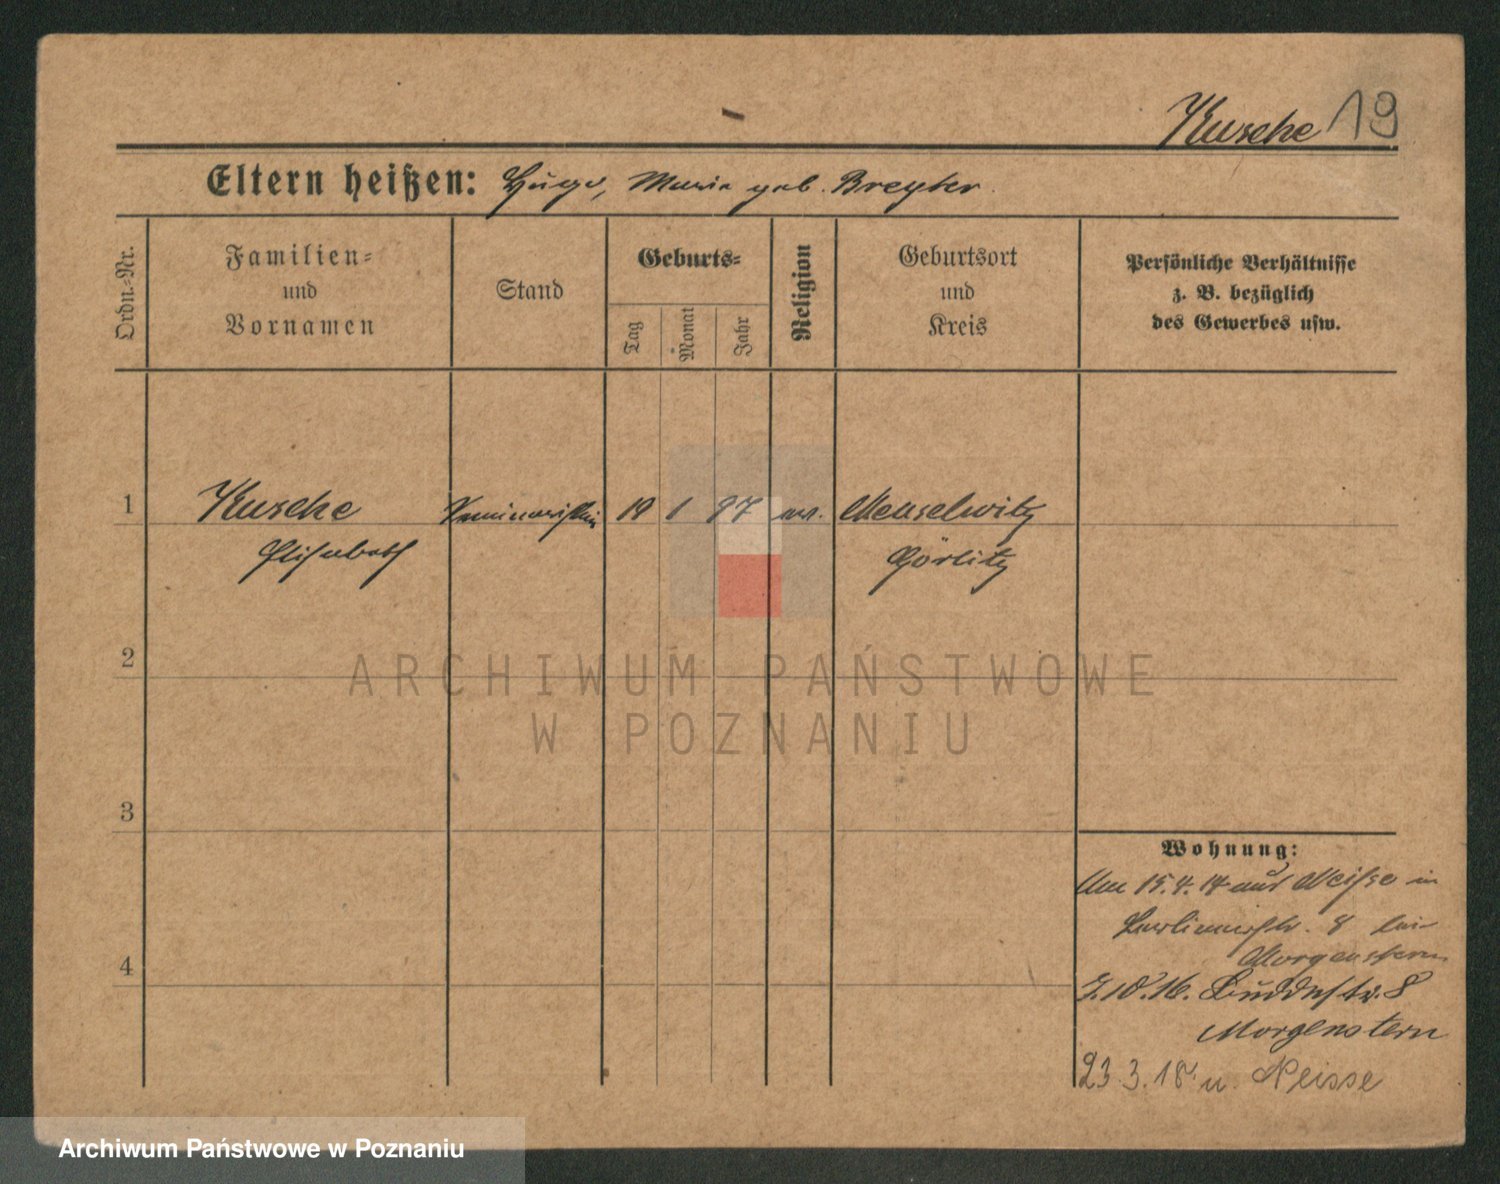 Kusche 19
Eltern heißen: Hugo, Maria geb. Breyter.
Ordn.-Nr.
Familien-
und
Vornamen
Stand
Geburts-
Tag
Monat
Jahr
Religion
Geburtsort
und
Kreis
Persönliche Verhältnisse
z. B. bezüglich
des Gewerbes usw.
1 Kusche Seminaristin 19 1 97 ev. Meuselwitz
Elisabeth Görlitz
2
3
4
Wohnung:
Am 15.4.14 aus Neisse in
8 bei
Morgenstern
Buddestr. 8
Morgenstern
23.3.18. n. Neisse
ARCHIWUM PAŃSTWOWE
W POZNANIU
Archiwum Państwowe w Poznaniu